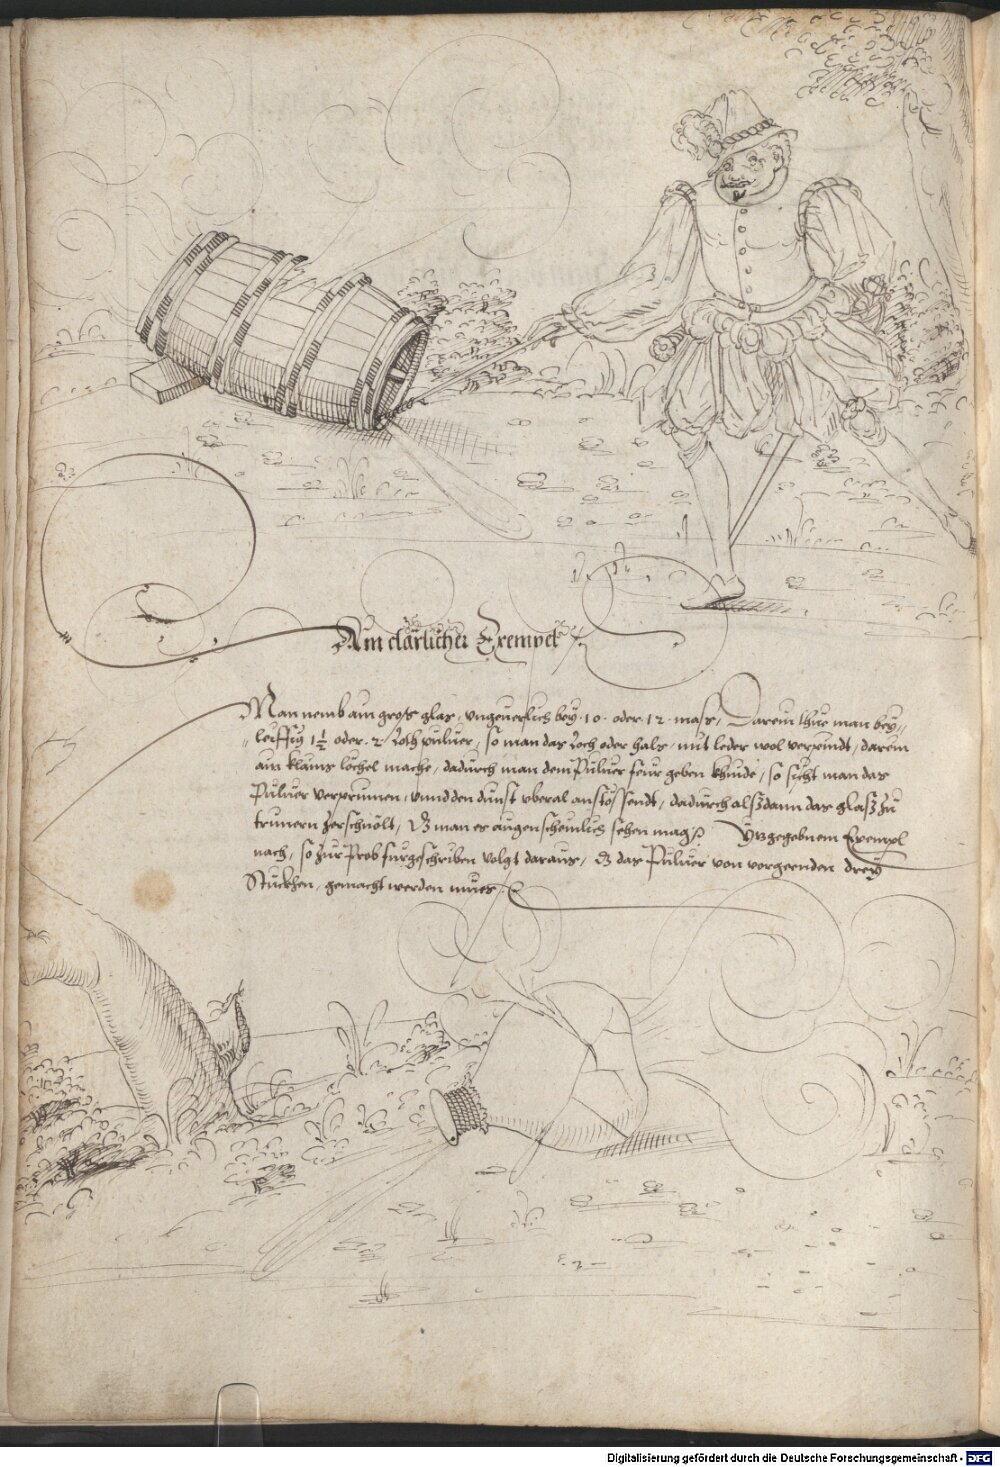 Ain clärlicher Exempel
Man nemb ain gross glas, ungeuerlich bey .10. oder .12. mass, Darein thue man bey,,
,,leiffig 1½ oder .2. Loth puluer, so man das Loch oder hals, mit leder wol verpindt, darein
ain klains löchel mache, dadurch man dem Puluer feur geben khinde, so sicht man das
Puluer verprinnen, unnd den dunst vberal anstossendt, dadurch alssdann das glass zu
trimern zerschnölt, dz man es augenscheinlich sehen mag Ytzgegebnem Exempl
nach, so zur Prob furgeschriben volgt daraus, dz das Puluer von vorgeenden drey
Stuckhen, gemacht werden mues.
Digitalisierung gefördert durch die Deutsche Forschungsgemeinschaft - DFG